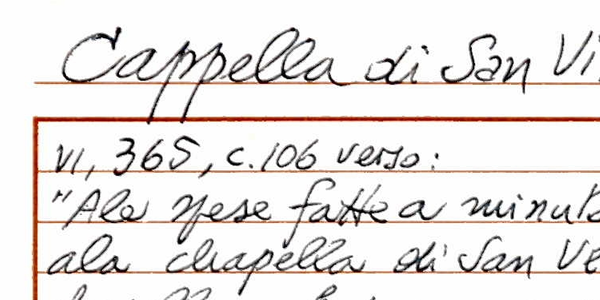 Cappella di San Vi
VI, 365, c. 106 verso:
"Ale spese fatte a minut
ala chapella di San Ve